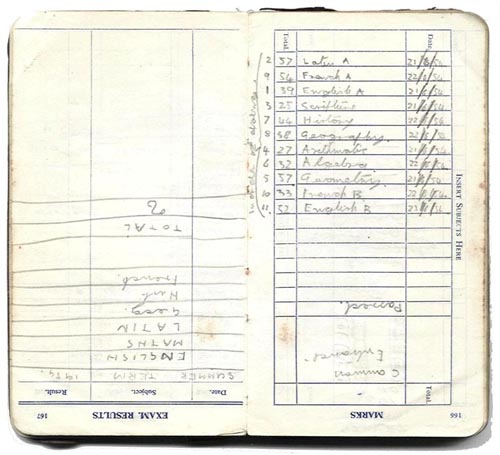 167 EXAM. RESULTS
Date. Subject. Result.
SUMMER TERM 1954.
ENGLISH
MATHS
LATIN
Geog.
French.
TOTAL
MARKS 166
Total.
Common
Entrance
Passed.
INSERT SUBJECTS HERE
Total. Date.
2 57 Latin A 21/6/54
9 54 French A 22/6/54
1 39 English A 21/6/54
3 25 Scripture 21/6/54
7 44 History 22/6/54
8 38 Geography. 22/6/54
4 27 Arithmetic 21/6/54
6 32 Algebra 22/6/54
5 57 Geometry. 21/6/54
10 33 French B 22/6/54
11. 52 English B 23/6/54